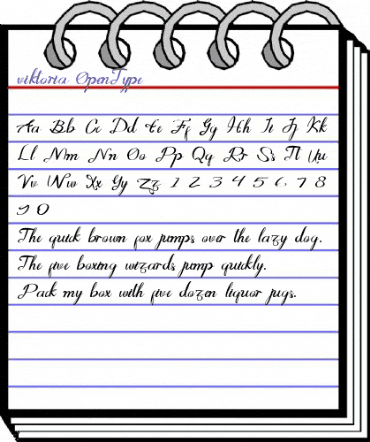 viktoria OpenType
Aa Bb Cc Dd Ee Ff Gg Hh Ii Jj Kk
Ll Mm Nn Oo Pp Qq Rr Ss Tt Uu
Vv Ww Xx Yy Zz 1 2 3 4 5 6 7 8
9 0
The quick brown fox jumps over the lazy dog.
The five boxing wizards jump quickly.
Pack my box with five dozen liquor jugs.